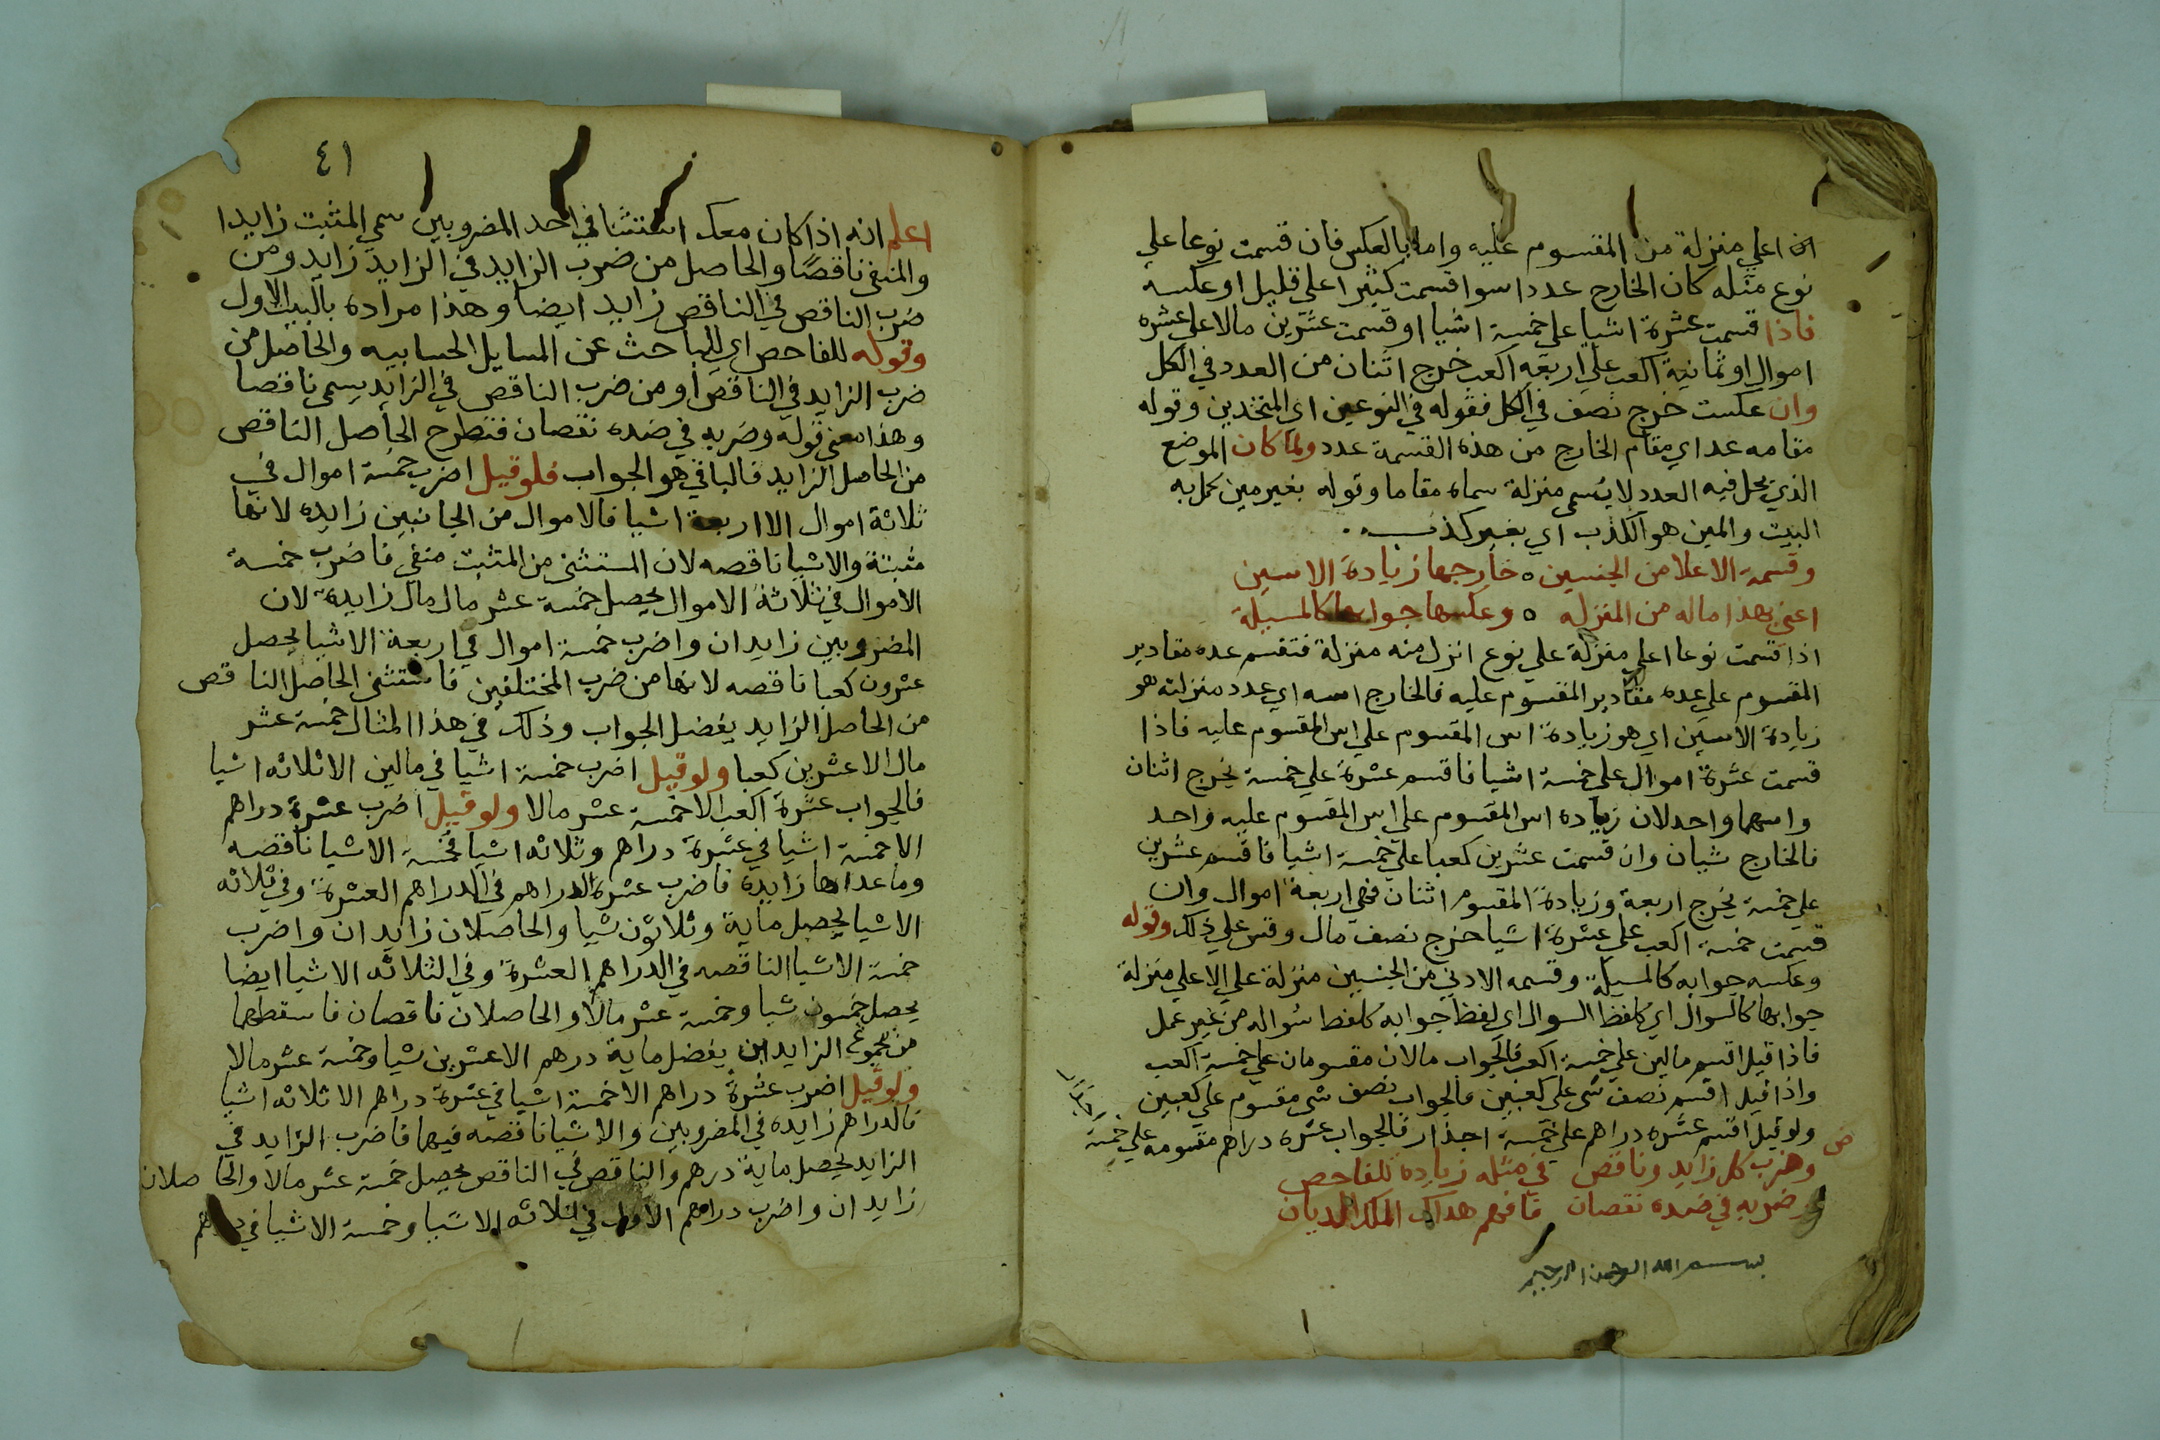 اعلي منزلة من المقسوم عليه واما بالعكس فان قسمت نوعا علي
نوع مثله كان الخارج عددا سوا قسمت كثيرا علي قليل او عكسه
فاذا قسمت عشرة اشيا علي خمسة اشيا او قسمت عشرين مالا علي عشره
اموال او ثمانية اكعب علي اربعه اكعب خرج اثنان من العدد في الكل
وان عكست خرج نصف في الكل فقوله في النوعين اي المتحدين وقوله
مقامه عدا اي مقام الخارج من هذه القسمة عدد ولما كان الموضع
الذي يحل فيه العدد لا يسمي منزلة سماه مقاما وقوله بغير مين كمل به
البيت والمين هو الكذب اي بغير كذب
وقسمة الاعلا من الجنسين ه خارجها زيادة الاسين
اعني بهذا ماله من المنزله ه وعكسها جوابها كالمسيلة
اذا قسمت نوعا اعلي منزلة علي نوع انزل منه منزلة فتقسم عده مقادير
المقسوم علي عده مقادير المقسوم عليه فالخارج اسه اي عدد منزلته هو
زيادة الاسين اي هو زيادة اس المقسوم علي اس المقسوم عليه فاذا
قسمت عشرة اموال علي خمسة اشيا فاقسم عشرة علي خمسة يخرج اثنان
واسهما واحد لان زياده اس المقسوم علي اس المقسوم عليه واحد
فالخارج شيان وان قسمت عشرين كعبا علي خمسة اشيا فاقسم عشرين
علي خمسة يخرج اربعة وزيادة المقسوم اثنان فهي اربعة اموال وان
قسمت خمسة اكعب علي عشرة اشيا خرج نصف مال وقس علي ذلك وقوله
وعكسه جوابه كالمسيلة وقسمه الادني من الجنسين منزلة علي الاعلي منزلة
جوابها كالسوال اي كلفظ السوال اي لفظ جوابه كلفظ سواله من غير عمل
فاذا قيل اقسم مالين علي خمسة اكعب فالجواب مالان مقسومان علي خمسة اكعب
واذا قيل اقسم نصف شي علي كعبين فالجواب نصف شي مقسوم علي كعبين
ولو قيل اقسم عشره دراهم علي خمسة اجذار فالجواب عشره دراهم مقسومه علي خمسة
ص
وضرب كل زايد وناقص في مثله زيادة للفاحص
وضربه في ضده نقصان فافهم هداك الملك الديان
بسم الله الرحمن الرحيم
٤١
اعلم انه اذا كان معك استثنا في احد المضروبين سمي المثبت زايدا
والمنفي ناقصا والحاصل من ضرب الزايد في الزايد زايد ومن
ضرب الناقص في الناقص زايد ايضا وهذا مراده بالبيت الاول
وقوله للفاحص اي للباحث عن المسايل الحسابيه والحاصل من
ضرب الزايد في الناقص او من ضرب الناقص في الزايد يسمي ناقصا
وهذا معني قوله وضربه في ضده نقصان فتطرح الحاصل الناقص
من الحاصل الزايد فالباقي هو الجواب فلو قيل اضرب خمسة اموال في
ثلاثة اموال الا اربعة اشيا فالاموال من الجانبين زايده لانها
مثبتة والاشيا ناقصه لان المستثني من المثبت منفي فاضرب خمسة
الاموال في ثلاثة الاموال يحصل خمسة عشر مال مال زايدة لان
المضروبين زايدان واضرب خمسة اموال في اربعة الاشيا يحصل
عشرون كعبا ناقصه لانها من ضرب المختلفين فاستثني الحاصل الناقص
من الحاصل الزايد يفضل الجواب وذلك في هذا المثال خمسة عشر
مال الا عشرين كعبا ولو قيل اضرب خمسة اشيا في مالين الا ثلاثه اشيا
فالجواب عشرة اكعب الا خمسة عشر مالا ولو قيل اضرب عشرة دراهم
الا خمسة اشيا في عشرة دراهم وثلاثه اشيا فخمسة الاشيا ناقصه
وما عداها زايدة فاضرب عشرة الدراهم في الدراهم العشرة وفي ثلاثه
الاشيا يحصل ماية وثلاثون شيا والحاصلان زايدان واضرب
خمسة الاشيا الناقصه في الدراهم العشرة وفي الثلاثه الاشيا ايضا
يحصل خمسون شيا وخمسة عشر مالا والحاصلان ناقصان فاسقطهما
من مجموع الزايدين يفضل ماية درهم الا عشرين شيا وخمسة عشر مالا
ولو قيل اضرب عشرة دراهم الا خمسة اشيا في عشرة دراهم الا ثلاثه اشيا
فالدراهم زايده في المضروبين والاشيا ناقصه فيهما فاضرب الزايد في
الزايد يحصل ماية درهم والناقص في الناقص يحصل خمسة عشر مالا والحاصلان
زايدان واضرب دراهم الاول في ثلاثه الاشيا وخمسة الاشيا في